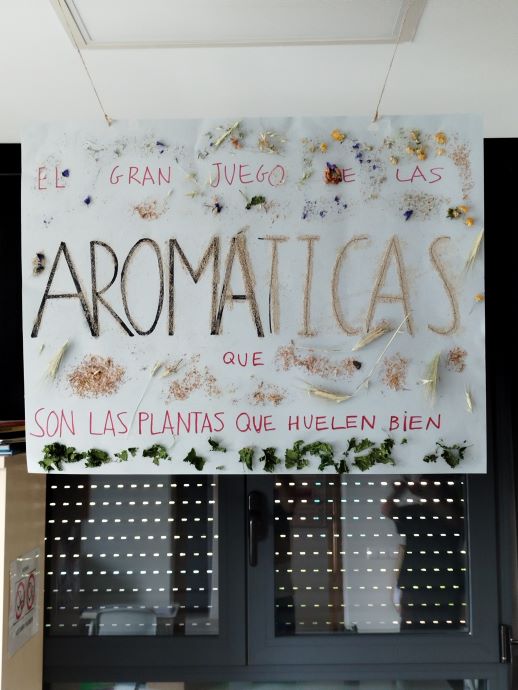 EL GRAN JUEGO DE LAS
AROMÁTICAS
QUE
SON LAS PLANTAS QUE HUELEN BIEN